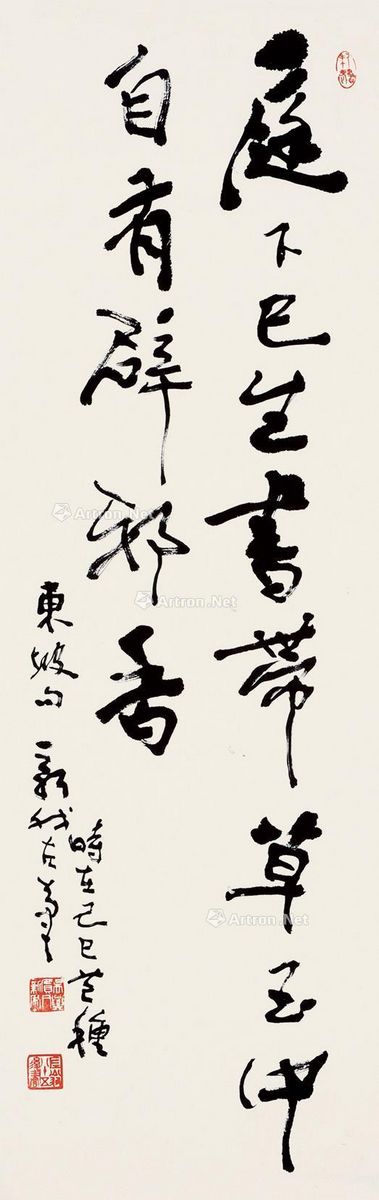 庭下已生書帶草玉中
自有辟邪香
東坡句
時在己巳芒種
Artron.Net
Artron.Net
Artron.Net
Artron.Net